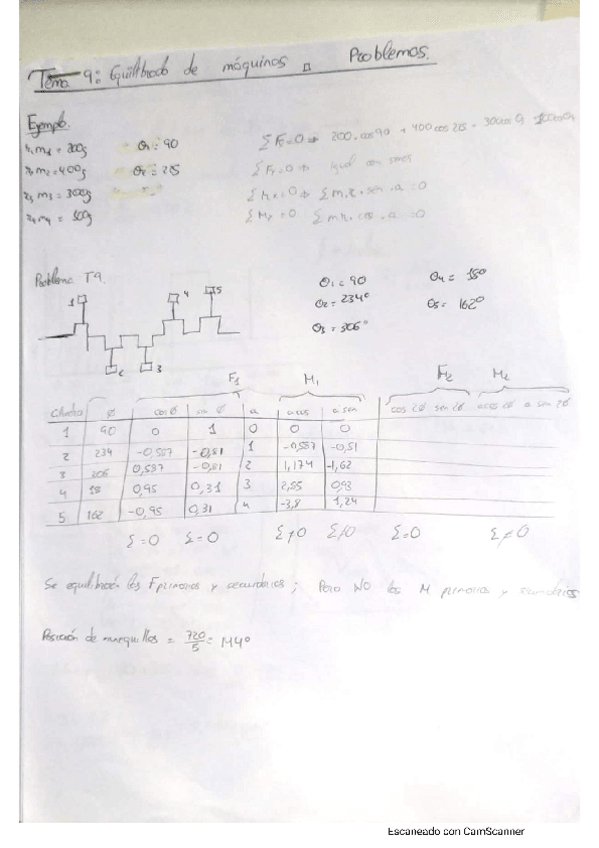 Tema 9: Equilibrado de máquinas Problemas.
Ejemplo
r₁ m₁ = 200g θ₁ = 90 ΣFx=0 ⇒ 200.cos90 + 400cos 215
m₂ = 400g θ₂ = 215 ΣFy=0 ⇒ igual con senos
r₃ m₃ = 300g ΣMx=0 ⇒ Σm.r.sen.a =0
r₄ m₄ = 500g ΣMy=0 Σmr.cos.a =0
Problema T9.
1 4 5
2 3
θ₁ = 90 θ₄ = 18°
θ₂ = 234° θ₅ = 162°
θ₃ = 306°
F₁ M₁ F₂ M₂
Cilindro ø cos ø sen ø a a cos a sen cos 2ø sen 2ø a cos 2ø a sen 2ø
1 90 0 1 0 0 0
2 234 -0,587 -0,81 1 -0,587 -0,81
3 306 0,587 -0,81 2 1,174 -1,62
4 18 0,95 0,31 3 2,85 0,93
5 162 -0,95 0,31 4 -3,8 1,24
Σ=0 Σ=0 Σ≠0 Σ≠0 Σ=0 Σ≠0
Se equilibran las F primarias y secundarias; Pero NO los M primarios y secundarios
Posición de manquillos = 720/5 = 144°
Escaneado con CamScanner